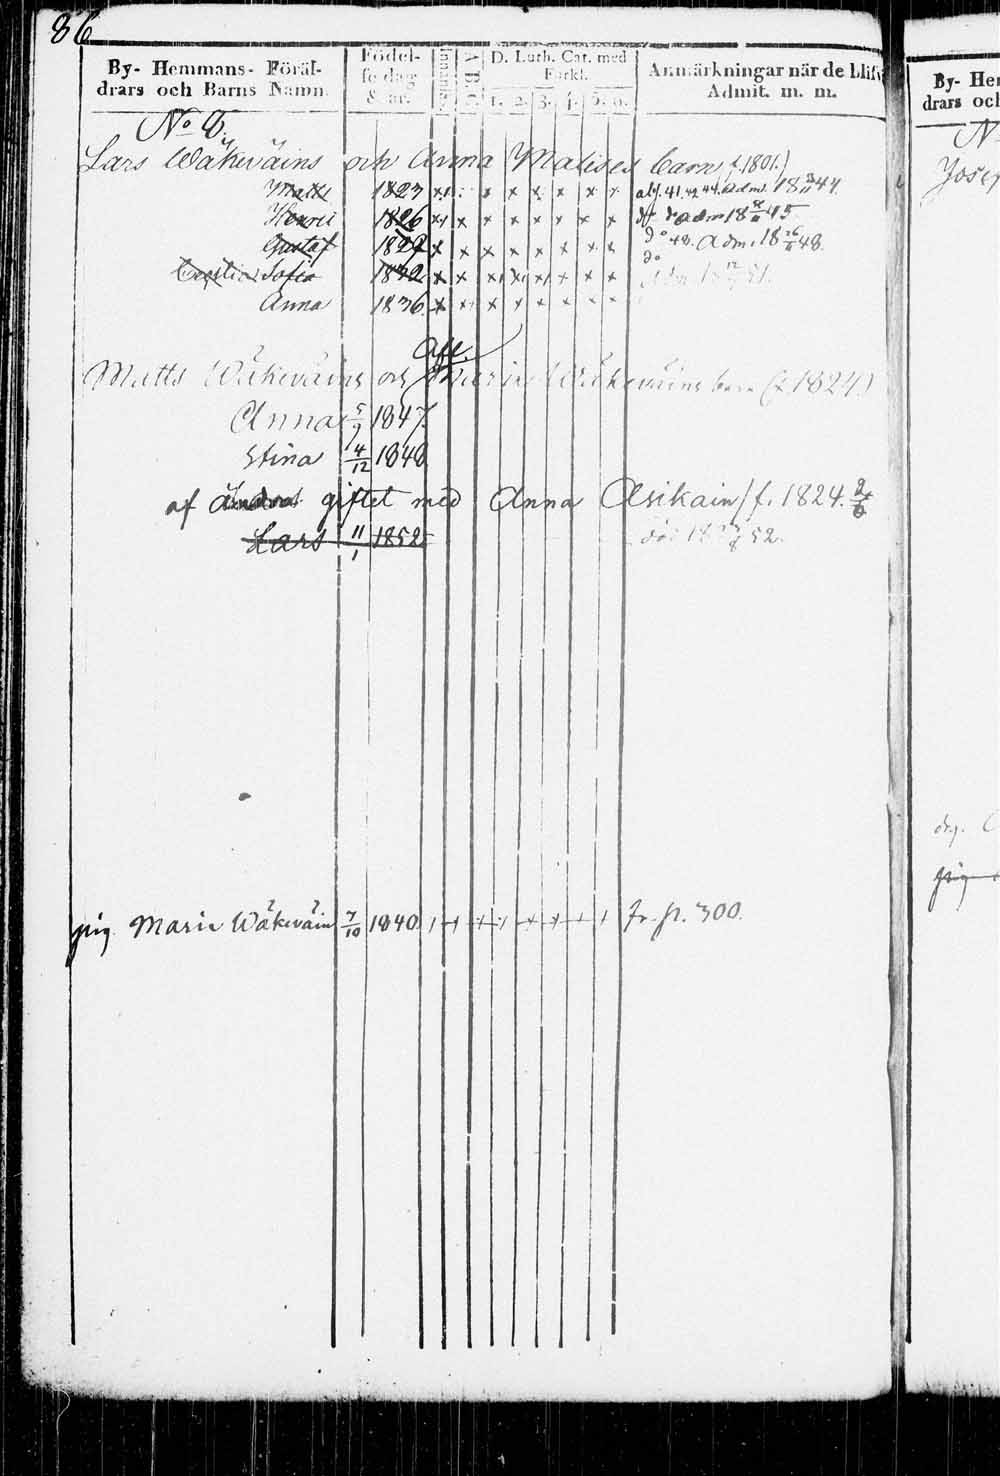 86
By- Hemmans- Föräl-
drars och Barns Namn.
Födel-
se dag
& år.
Innanl.
A B C
D. Luth. Cat. med
Förkl.
1. 2. 3. 4. 5. 6.
Anmärkningar när de blifv
Admit. m. m.
No 8.
Lars Wäkeväins och Anna Matises barn (f. 1801.)
Matts 1823 x x x x x x x x x 41. 42. 44. adm. 18 3/11 44.
Henric 1826 x x x x x x x x x do adm 18 45
Gustaf 1829 x x x x x x x x do 48. adm. 18 26/11 48.
Sofia 1832 x x x x x x x x x do adm 18 51.
Anna 1836 x x x x x x x x x
afl.
Matts Wäkeväins och Maria Wäkeväins barn (f. 1824)
Anna 5/9 1847.
Stina 4/12 1848
af Andra giftet med Anna Asikain / f. 1824.
Lars 11/1 1852 död 18 52.
pig. Maria Wäkeväin 7/10 1840 fr. p. 300.
By- Hem
drars och
N
Josep
drg.
pig